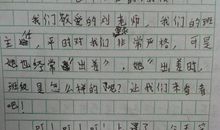 我们敬爱的刘老师，我们的班
主任，平时对我们非常严格，可是
她也经常"出差"，她"出差"时，
班级是怎么样的呢？让我们来看看
吧！